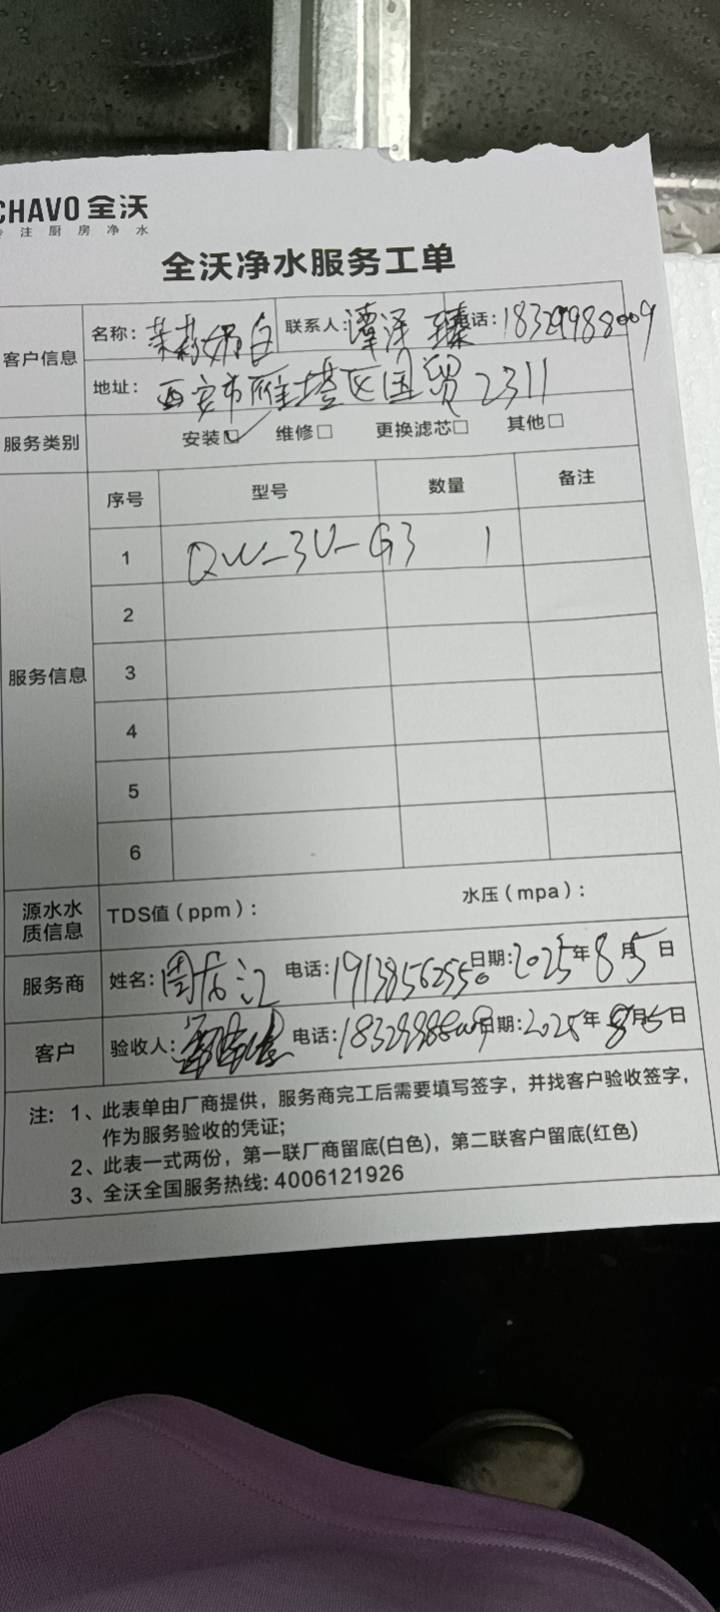 CHAVO 全沃
注 厨 房 净 水
全沃净水服务工单
客户信息 名称: 茉莉奶白 联系人: 谭泽臻 电话: 18329988009
地址: 西安市雁塔区国贸2311
服务类别 安装☑ 维修□ 更换滤芯□ 其他□
服务信息 序号 型号 数量 备注
1 QW-3U-G3 1
2
3
4
5
6
源水水质信息 TDS值(ppm): 水压(mpa):
服务商 姓名: 电话: 19138562550 日期: 2025年8月5日
客户 验收人: 电话: 日期: 2025年8月5日
注: 1、此表单由厂商提供，服务商完工后需要填写签字，并找客户验收签字，
作为服务验收的凭证;
2、此表一式两份，第一联厂商留底(白色)，第二联客户留底(红色)
3、全沃全国服务热线: 4006121926